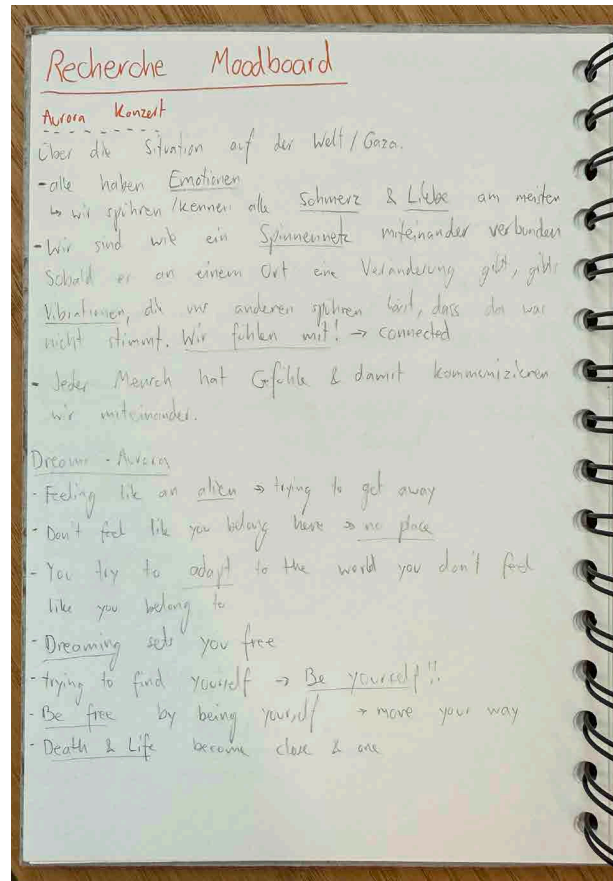 Recherche Moodboard
Aurora Konzert
Über die Situation auf der Welt / Gaza.
- alle haben Emotionen
↳ wir spühren / kennen alle Schmerz & Liebe am meisten
- Wir sind wie ein Spinnennetz miteinander verbunden
Sobald es an einem Ort eine Veränderung gibt, gibts
Vibrationen, die uns anderen spühren lässt, dass da was
nicht stimmt. Wir fühlen mit! → connected
- Jeder Mensch hat Gefühle & damit kommunizieren
wir miteinander.
Dreams - Aurora
- Feeling like an alien → trying to get away
- Don't feel like you belong here → no place
- You try to adapt to the world you don't feel
like you belong to
- Dreaming sets you free
- trying to find yourself → Be yourself!!
- Be free by being yourself → move your way
- Death & Life become close & one